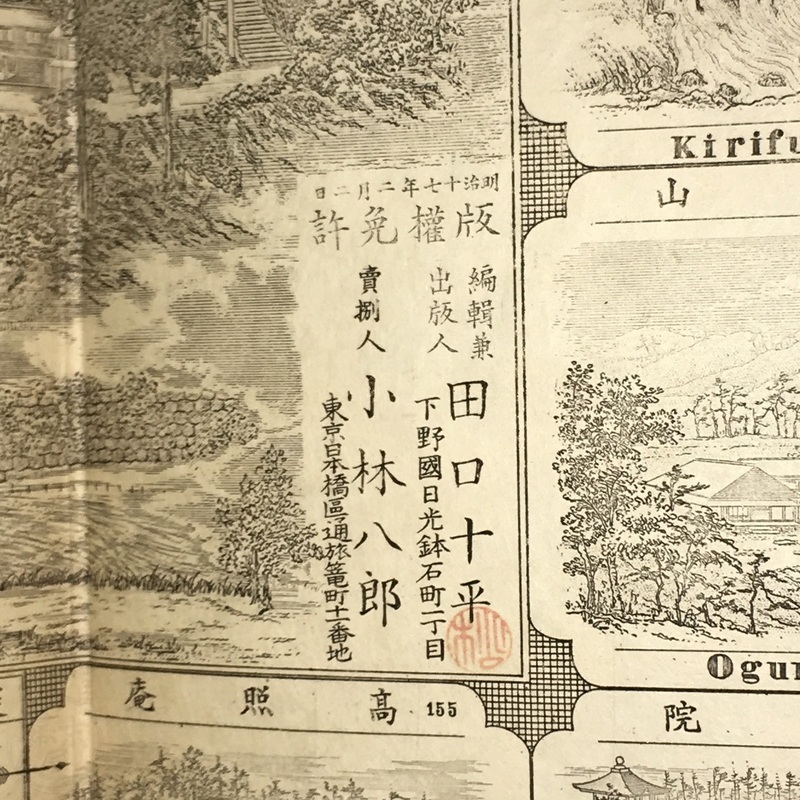 明治十七年二月二日
版權免許
編輯兼
出版人
田口十平
下野國日光鉢石町一丁目
賣捌人
小林八郎
東京日本橋區通旅篭町十一番地
Kirifu
山
Ogu
院
高照庵
155